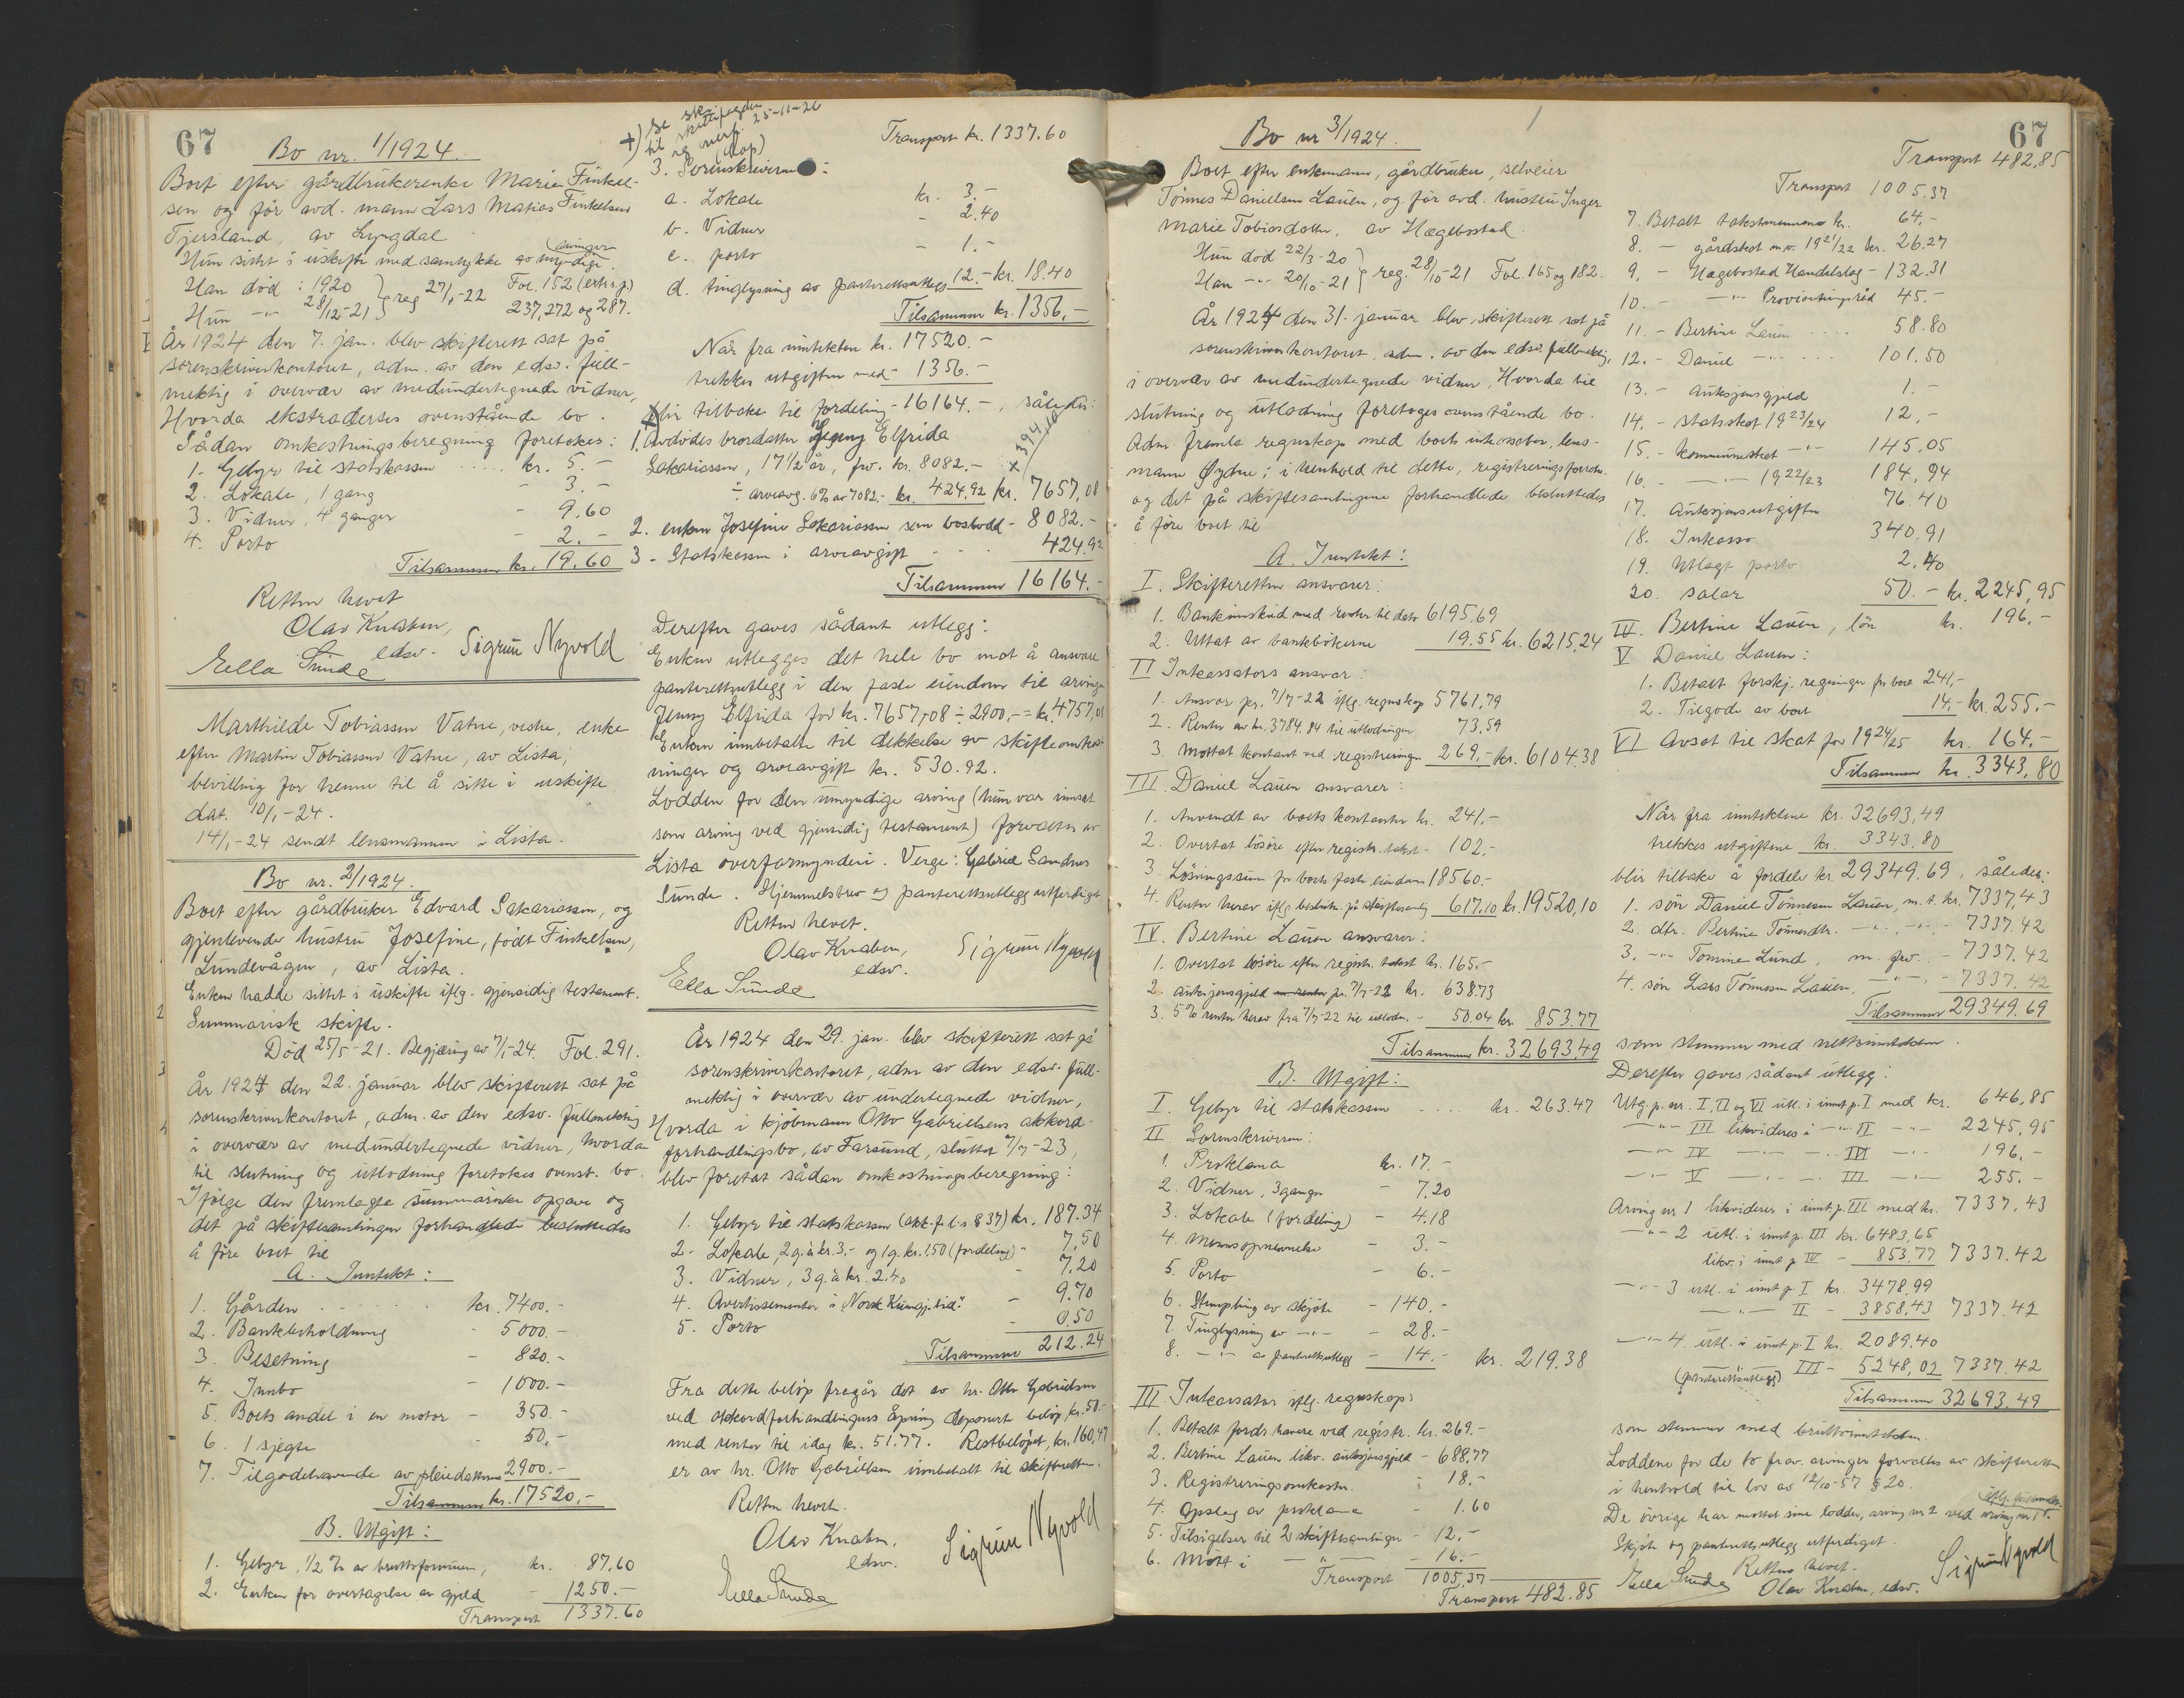 67
Bo nr. 1/1924.
Boet efter gårdbrukerenke Marie Finkel-
sen og før avd. mann Lars Matias Finkelsen
Tjersland, av Lyngdal
Hun sittet i uskifte med samtykke av myndige
(arvinger
Han død : 1920 } reg 27/1-22 Fol. 152 (extr.p.)
Hun -"- 28/12-21 } 237, 272 og 287.
År 1924 den 7. jan. blev skifterett sat på
sorenskriverkontoret, adm. av den edsv. full-
mektig i overvær av medundertegnede vidner,
Hvorda ekstradertes ovenstående bo.
Sådan omkostningsberegning foretokes:
1. Gebyr til statskassen ..... kr. 5.-
2. Lokale, 1 gang - 3.-
3. Vidner, 4 ganger - 9.60
4. Porto - 2.-
Tilsammen kr. 19.60
Retten hevet
Olav Knaben,
edsv. Sigrun Nyvold
Ella Sunde
Marthilde Tobiassen Vatne, vestre, enke
efter Martin Tobiassen Vatne, av Lista,
bevilling for henne til å sitte i uskifte
dat. 10/1-24.
14/1-24 sendt lensmannen i Lista.
Bo nr. 2/1924.
Boet efter gårdbruker Edvard Sakariassen, og
gjenlevende hustru Josefine, født Finkelsen,
Lundevågen, av Lista.
Enken hadde sittet i uskifte iflg. gjensidig testament.
Summarisk skifte.
Død 25/5-21. Begjæring av 7/1-24. Fol. 291.
År 1924 den 22. januar blev skifterett sat på
sorenskriverkontoret, adm. av den edsv. fullmektig
i overvær av medundertegnede vidner, hvorda
til slutning og utlodning foretokes ovenst. bo.
Ifølge den fremlagte summariske opgave og
det på skiftesamlingen forhandlede besluttedes
å føre boet til
A. Inntekt:
1. Gården ...... kr. 7400.-
2. Bankbeholdning - 5000.-
3. Besetning - 820.-
4. Innbo - 1000.-
5. Boets andel i en motor - 350.-
6. 1 sjegte - 50.-
7. Tilgodehavende av pleiedatteren 2900.-
Tilsammen kr. 17520.-
B. Utgift:
1. Gebyr, 1/2 % av bruttoformuen, kr. 87.60
2. Enken for overtagelse av gjeld - 1250.-
Transport 1337.60
+) Se
til
25-11-26
Transport kr. 1337.60
3. Sorenskriveren:
a. Lokale kr. 3.-
b. Vidner - 2.40
c. porto - 1.-
d. tinglysning av panterettsutlegg 12.- kr. 18.40
Tilsammen kr. 1356.-
Når fra inntekten kr. 17520.-
trekkes utgiften med - 1356.-
blir tilbake til fordeling - 16164.-, således:
1. Avdødes brordatter Jenny Elfrida
Sakariassen, 17 1/2 år, fw. kr. 8082.-
÷ arveavg. 6% av 7082.- kr. 424.92 kr. 7657,08
2. enken Josefine Sakariassen som boslodd - 8082.-
3 - Statskassen i arveavgift - 424.92
Tilsammen 16164.-
Derefter gaves sådant utlegg:
Enken utlegges det hele bo mot å ansvare
panterettsutlegg i den faste eiendom til arvingen
Jenny Elfrida for kr. 7657,08 ÷ 2900,- = kr. 4757,08
Enken innbetalte til dekkelse av skifteomkost-
ninger og arveavgift kr. 530.92.
Lodden for den umyndige arving (hun var innsat
som arving ved gjensidig testament) forvaltes av
Lista overformynderi. Verge: Gabriel Sandnes
Sunde. Hjemmelsbrev og panterettsutlegg utferdiget
Retten hevet.
Olav Knaben,
edsv. Sigrun Nyvold
Ella Sunde
År 1924 den 29. jan. blev skifterett sat på
sorenskriverkontoret, adm av den edsv. full-
mektig i overvær av undertegnede vidner,
Hvorda i kjøbmann Otto Gabrielsens akkord-
forhandlingsbo, av Farsund, sluttet 7/7-23,
blev foretat sådan omkostningsberegning:
1. Gebyr til statskassen (akk.f.l.s § 37) kr. 187.34
2. Lokale, 2 g. à kr. 3,- og 1 g. kr. 1,50 (fordeling) - 7,50
3. Vidner, 3 g. à kr. 2.40 - 7,20
4. Avertissementer i "Norsk Kunngj.tid." - 9.70
5. Porto - 0.50
Tilsammen 212.24
Fra dette beløp fragår det av hr. Otto Gabrielsen
ved akkordforhandlingens åpning deponert beløp kr. 50.-
med renter til idag kr. 51.77. Restbeløpet, kr. 160,47
er av hr. Otto Gabrielsen innbetalt til skifteretten.
Retten hevet.
Olav Knaben,
edsv. Sigrun Nyvold
Ella Sunde
67
Bo nr 3/1924.
Boet efter enkemann, gårdbruker, selveier
Tønnes Daniellsen Lauen, og før avd. hustru Inger
Marie Tobiasdatter, av Hægebostad.
Hun død 22/3-20 } reg. 28/10-21 Fol. 165 og 182.
Han -"- 20/10-21 }
År 1924 den 31. januar blev skifterett sat på
sorenskriverkontoret, adm. av den edsv. fullmektig,
i overvær av medundertegnede vidner, Hvorda til
slutning og utlodning foretoges ovenstående bo.
Adm. fremla regnskap med boets inkassator, lens-
mann Øydne; i henhold til dette, registreringsforretn.
og det på skiftesamlingene forhandlede besluttedes
å føre boet til
A. Inntekt:
I. Skifteretten ansvarer:
1. Bankinnskud med renter til dato 6195,69
2. Uttat av bankbøkerne 19.55 kr. 6215,24
II Inkassators ansvar:
1. Ansvar pr. 7/7-22 iflg. regnskap 5761,79
2. Renter av kr. 3784.84 til utlodningen 73,59
3. Mottat kontant ved registreringen 269,- kr. 6104.38
III. Daniel Lauen ansvarer:
1. Anvendt av boets kontanter kr. 241.-
2. Overtat løsøre efter registr. takst - 102,-
3. Løsningssum for boets faste eiendom 18560.-
4. Renter herav iflg. beslutn. på skiftesamling 617.10 kr. 19520,10
IV. Bertine Lauen ansvarer:
1. Overtat løsøre efter registr. takst kr. 165.-
2. auksjonsgjeld pr. 7/7-22 kr. 638.73
3. 5% renter herav fra 7/7-22 til utlodn. - 50.04 kr. 853.77
Tilsammen kr. 32693.49
B. Utgift:
I. Gebyr til statskassen ... kr. 263.47
II. Sorenskriveren:
1. Proklama kr. 17.-
2. Vidner, 3 ganger - 7.20
3. Lokale (fordeling) - 4.18
4. Mannsopnevnelse - 3.-
5. Porto - 6.-
6. Stempling av skjøte - 140.-
7. Tinglysning av -"- - 28.-
8. -"- av panterettsutlegg - 14.- kr. 219.38
III. Inkassator iflg. regnskap:
1. Betalt fordr.havere ved registr. kr. 269.-
2. Bertine Lauen likv. auksjonsgjeld - 688,77
3. Registreringsomkostn. - 18.-
4. Opslag av proklama - 1.60
5. Tilsigelser til 2 skiftesamlinger - 12.-
6. Møtt i -"- - 16.-
Transport 1005,37
Transport 482.85
Transport 482,85
Transport 1005.37
7. Betalt takstmennene kr. 64.-
8. - gårdskat m.v. 1921/22 kr. 26.27
9. - Hægebostad Handelslag - 132.31
10. - -"- Provianteringsråd 45.-
11. - Bertine Lauen .... 58.80
12. - Daniel -"- .... 101.50
13. - auksjonsgjeld 1.-
14. - statsskat 1923/24 12.-
15. - kommuneskat -"- 145.05
16. - -"- 1922/23 184,94
17. Auksjonsutgifter 76.40
18. Inkasso 340.91
19. Utlagt porto 2.40
20. Salær 50.- kr. 2245,95
IV. Bertine Lauen, løn kr. 196.-
V Daniel Lauen:
1. Betalt forskj. regninger for boet 241,-
2. Tilgode av boet 14,- kr. 255.-
VI Avsat til skat for 1924/25 kr. 164.-
Tilsammen kr. 3343,80
Når fra inntektene kr. 32693,49
trekkes utgiftene kr. 3343.80
blir tilbake å fordele kr. 29349.69, således:
1. søn Daniel Tønnessen Lauen, m.t. kr. 7337,43
2. dtr. Bertine Tønnesdtr. -"- -"- - 7337.42
3. -"- Tomine Lund, m. fw. - 7337.42
4. søn Lars Tønnessen Lauen, -"- - 7337.42
Tilsammen 29349.69
som stemmer med nettoinntekten.
Derefter gaves sådant utlegg:
Utg.p. nr. I, II og VI utl. i innt p. I med kr. 646,85
-"- III likvideres i -"- II -"- 2245,95
-"- IV -"- -"- IV -"- 196.-
-"- V -"- -"- III -"- 255.-
Arving nr 1 likviderer i innt p. III med kr. 7337,43
-"- 2 utl. i innt p. III kr. 6483,65
likv. i innt p IV - 853.77 7337.42
-"- 3 utl. i innt p. I kr. 3478.99
-"- II - 3858,43 7337.42
-"- 4 utl. i innt p. I kr. 2089.40
(panterettsutlegg) III - 5248,02 7337.42
Tilsammen 32693,49
som stemmer med bruttoinntekten.
Loddene for de to frav. arvinger forvaltes av skifteretten
i henhold til lov av 12/10-57 § 20.
De øvrige har mottat sine lodder, arving nr 2 ved arving nr 1
Skjøte og panterettsutlegg utferdiget.
Retten hevet.
Ella Sunde Olav Knaben, edsv. Sigrun Nyvold